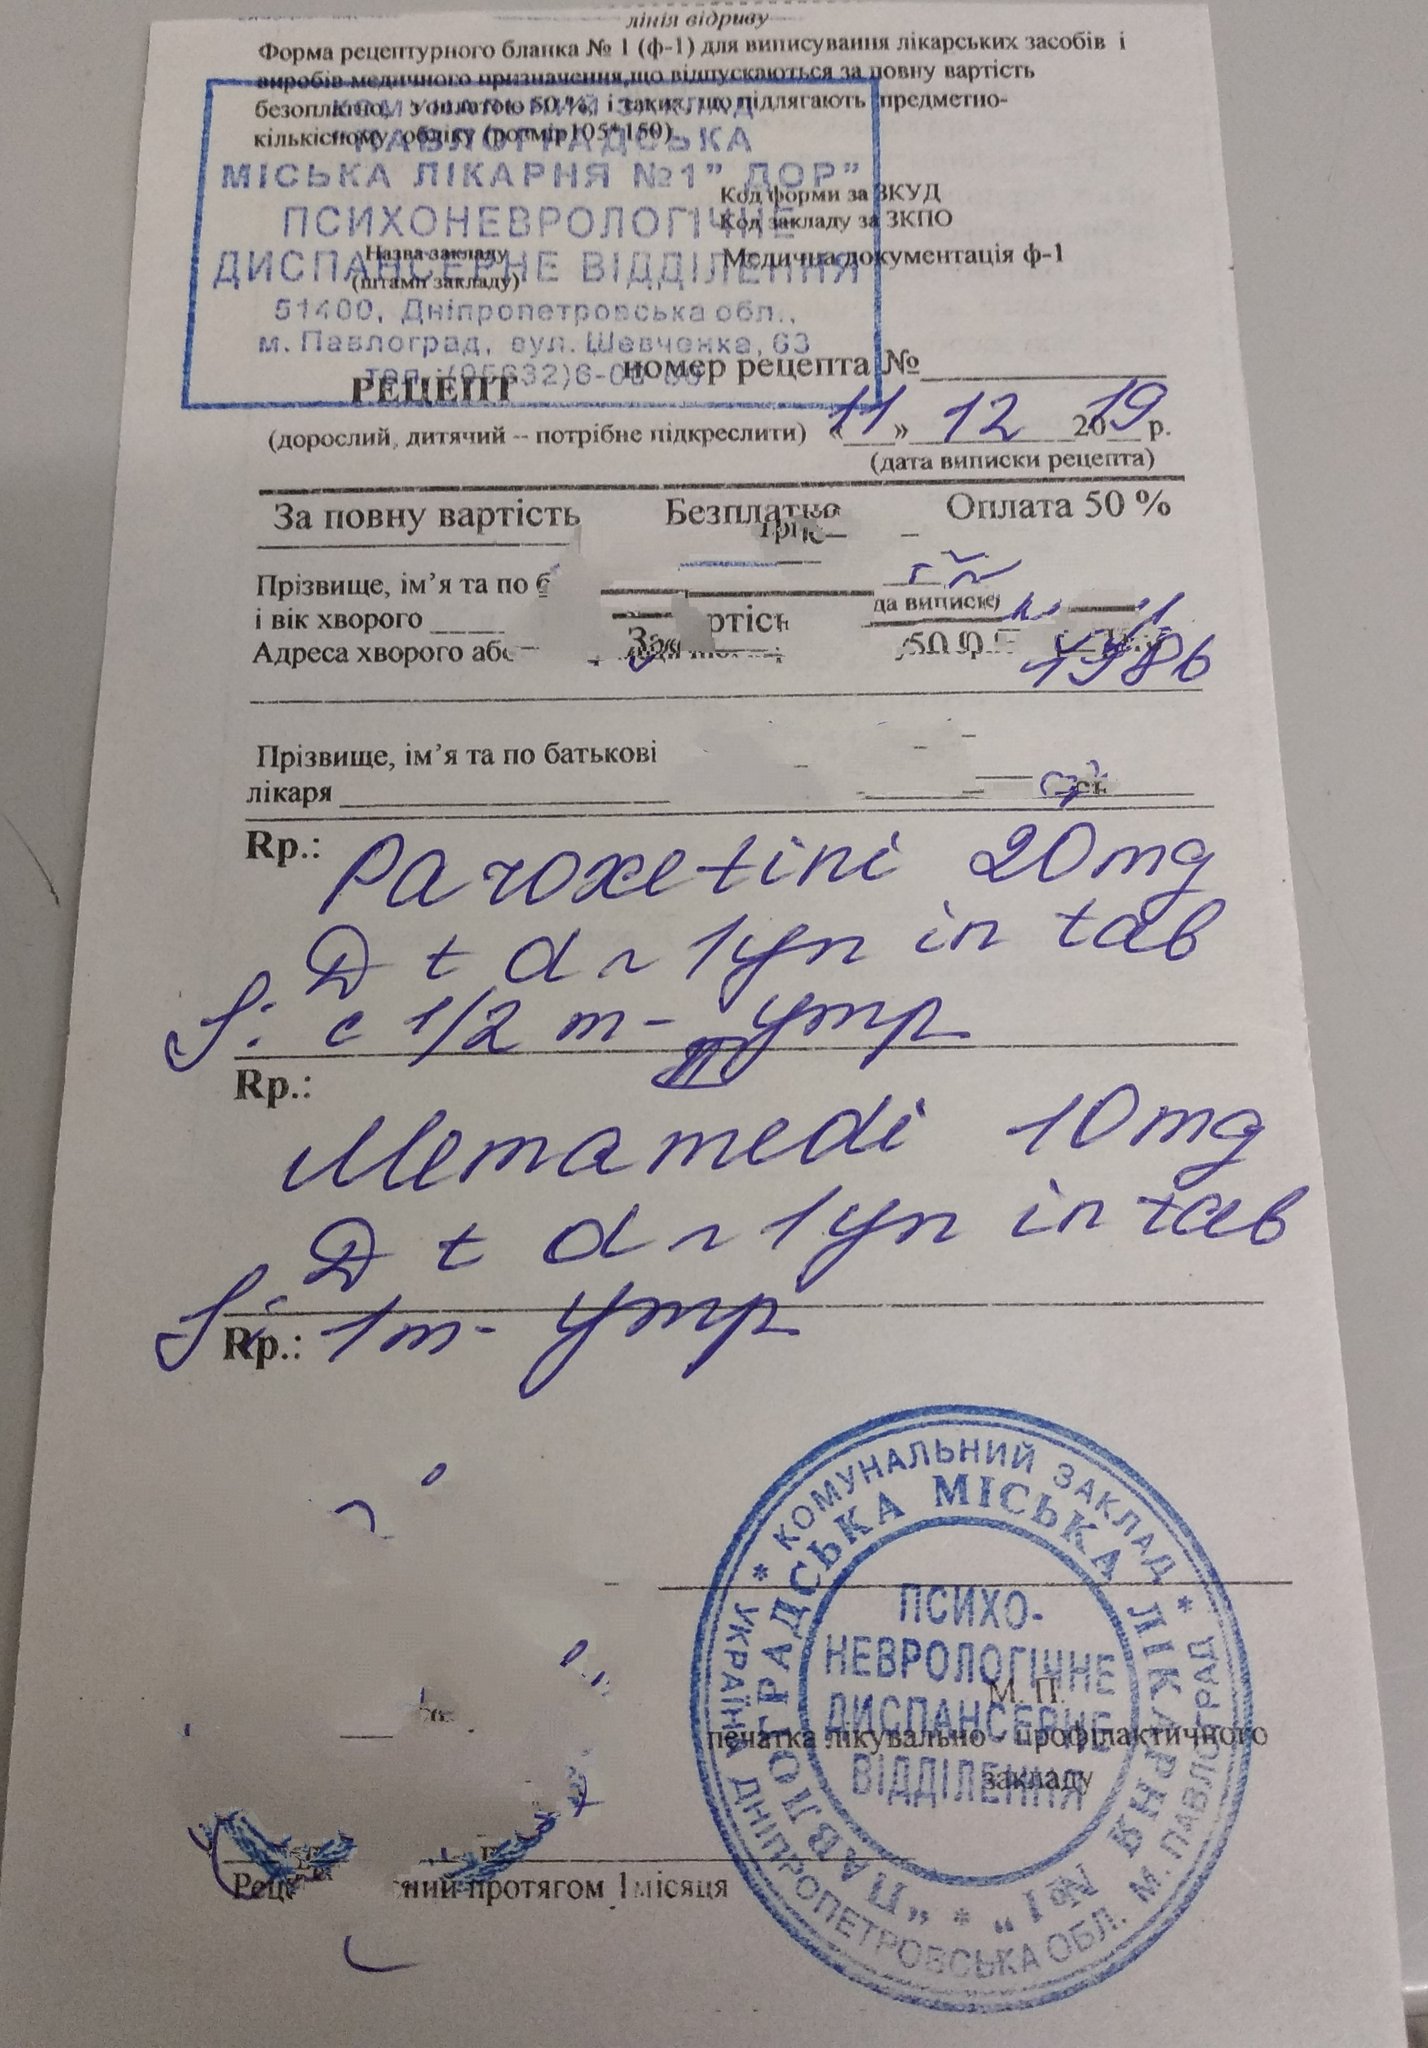 лінія відриву
Форма рецептурного бланка № 1 (ф-1) для виписування лікарських засобів і
виробів медичного призначення,що відпускаються за повну вартість
безоплатно, з оплатою 50 %, і таких, що підлягають предметно-
кількісному обліку (розмір105*150)
КОМУНАЛЬНИЙ ЗАКЛАД
"ПАВЛОГРАДСЬКА
МІСЬКА ЛІКАРНЯ №1" ДОР"
ПСИХОНЕВРОЛОГІЧНЕ
ДИСПАНСЕРНЕ ВІДДІЛЕННЯ
51400, Дніпропетровська обл.,
м. Павлоград, вул. Шевченка, 63
Код форми за ЗКУД
Код закладу за ЗКПО
Назва закладу
(штамп закладу)
Медична документація ф-1
номер рецепта №
РЕЦЕПТ
(дорослий, дитячий – потрібне підкреслити) «11» 12 2019 р.
(дата виписки рецепта)
За повну вартість Безплатно Оплата 50 %
Прізвище, ім’я та по
і вік хворого
Адреса хворого або
1986
Прізвище, ім’я та по батькові
лікаря
Rp.: Paroxetini 20mg
D t d ~ 1уп in tab
S: с 1/2 т- утр
Rp.:
Memamedi 10mg
D t d ~ 1уп in tab
S: 1т- утр
Rp.:
* КОМУНАЛЬНИЙ ЗАКЛАД *
УКРАЇНА ДНІПРОПЕТРОВСЬКА ОБЛ. М. ПАВЛОГРАД
"ПАВЛОГРАДСЬКА МІСЬКА ЛІКАРНЯ №1" *
ПСИХО-
НЕВРОЛОГІЧНЕ
ДИСПАНСЕРНЕ
ВІДДІЛЕННЯ
М. П.
печатка лікувально – профілактичного
закладу
протягом 1місяця